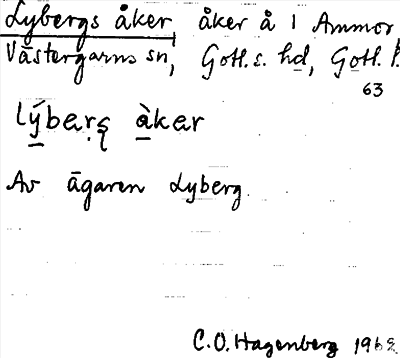 Lybergs åker åker å 1 Ammor,
Västergarns sn, Gotl. s. hd, Gotl. l.
63
lýbars àkar
Av ägaren Lyberg.
C.O. Hagenberg